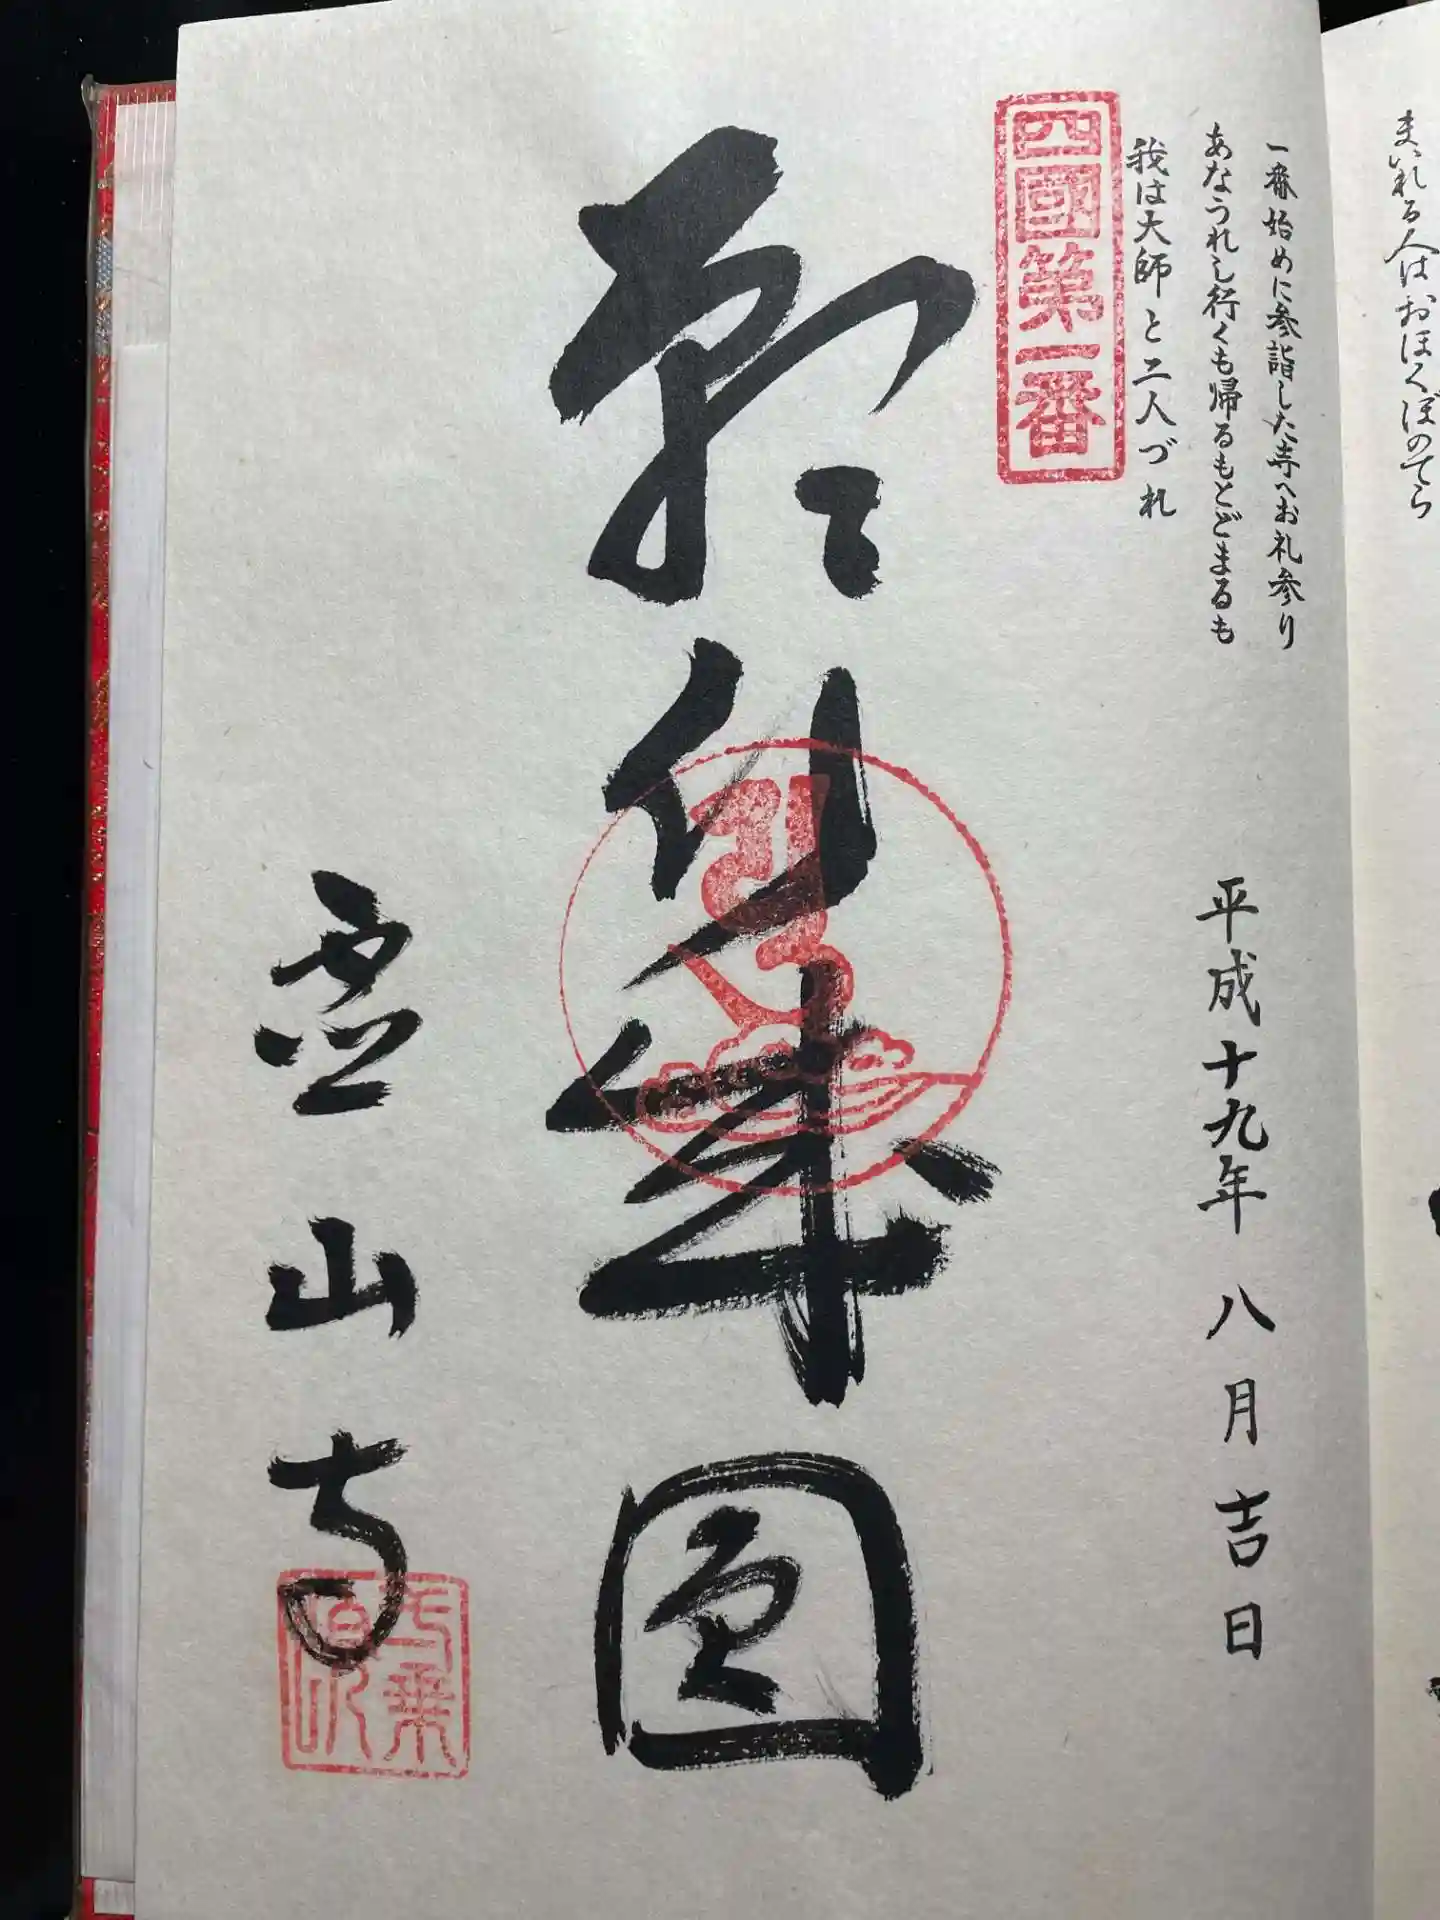 まいれる人はおほくぼのてら
一番始めに参詣した寺へお礼参り
あなうれし行くも帰るもとどまるも
我は大師と二人づれ
平成十九年 八月吉日
四國第一番
願 圓
霊山寺